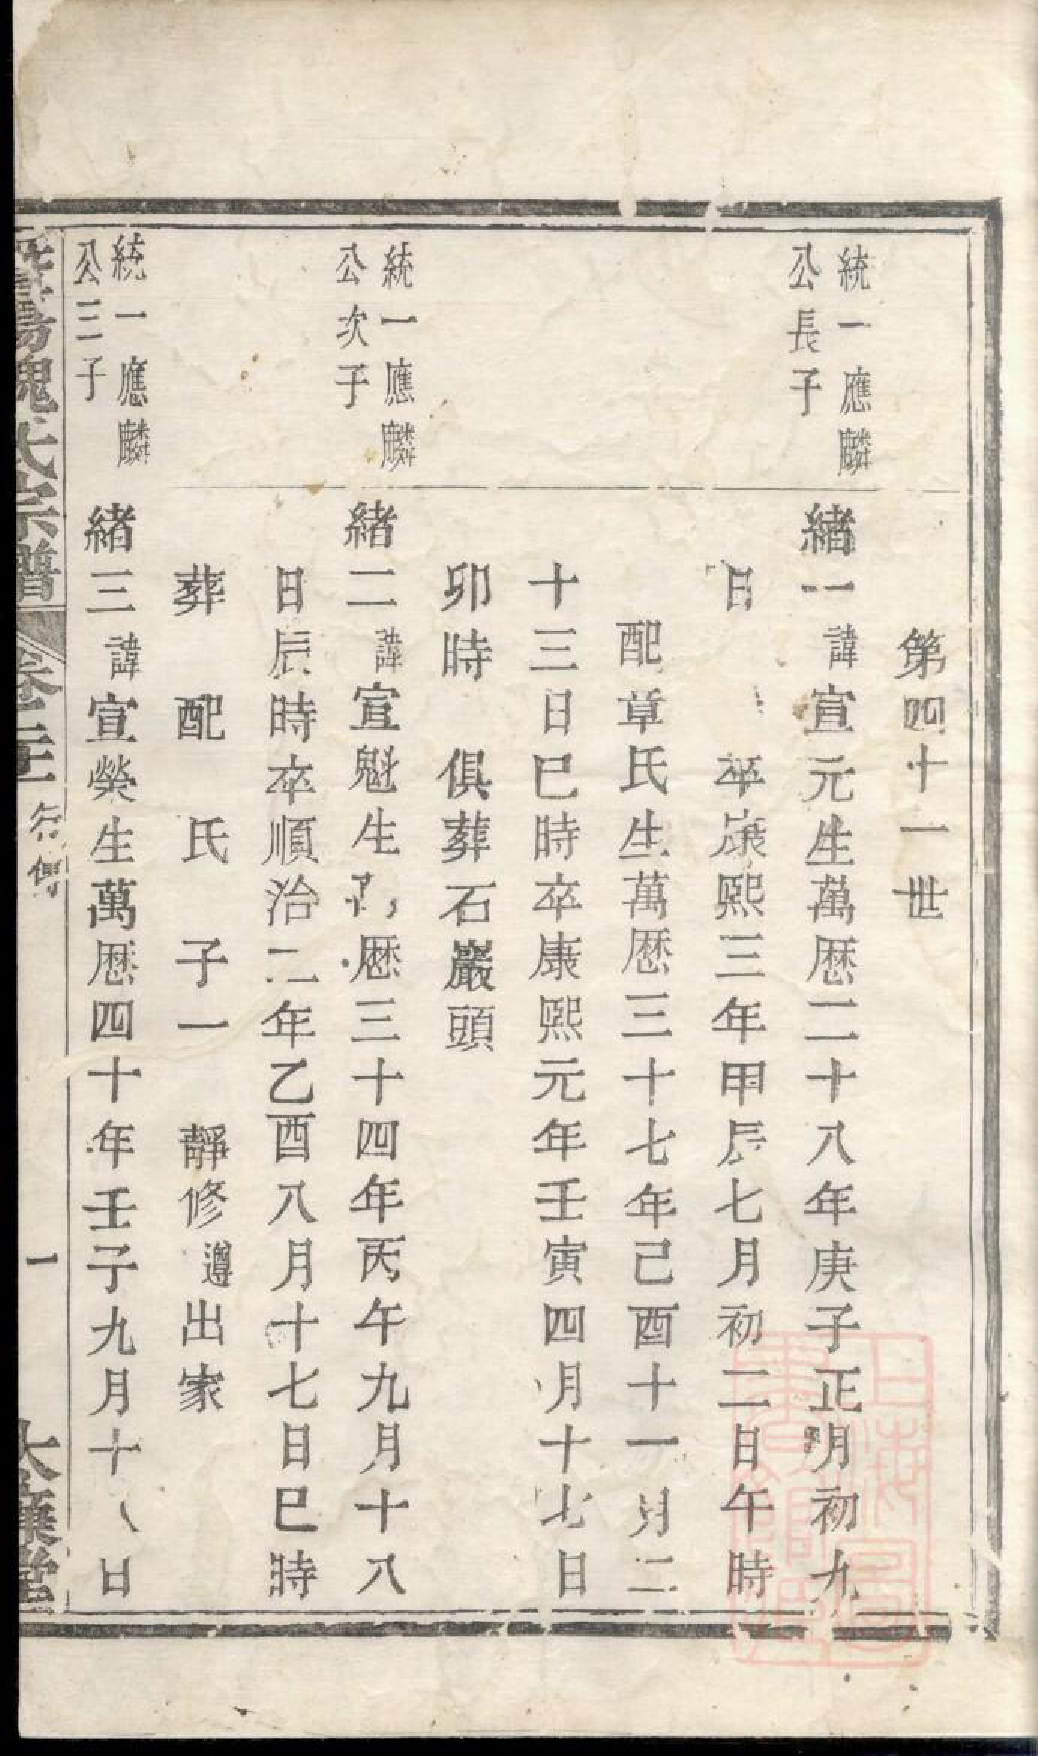 第四十一世
統一應麟
公長子
緒一諱宣元生萬厯二十八年庚子正月初九
日 卒康熙三年甲辰七月初二日午時
配章氏生萬厯三十七年己酉十一月二
十三日巳時卒康熙元年壬寅四月十七日
卯時 俱葬石巖頭
統一應麟
公次子
緒二諱宣魁生萬厯三十四年丙午九月十八
日辰時卒順治二年乙酉八月十七日巳時
葬 配 氏 子一 靜修遵出家
統一應麟
公三子
緒三諱宣榮生萬厯四十年壬子九月十八日
暨陽魏氏宗譜
卷之二 行傳
一
大廉堂
上海圖書館藏